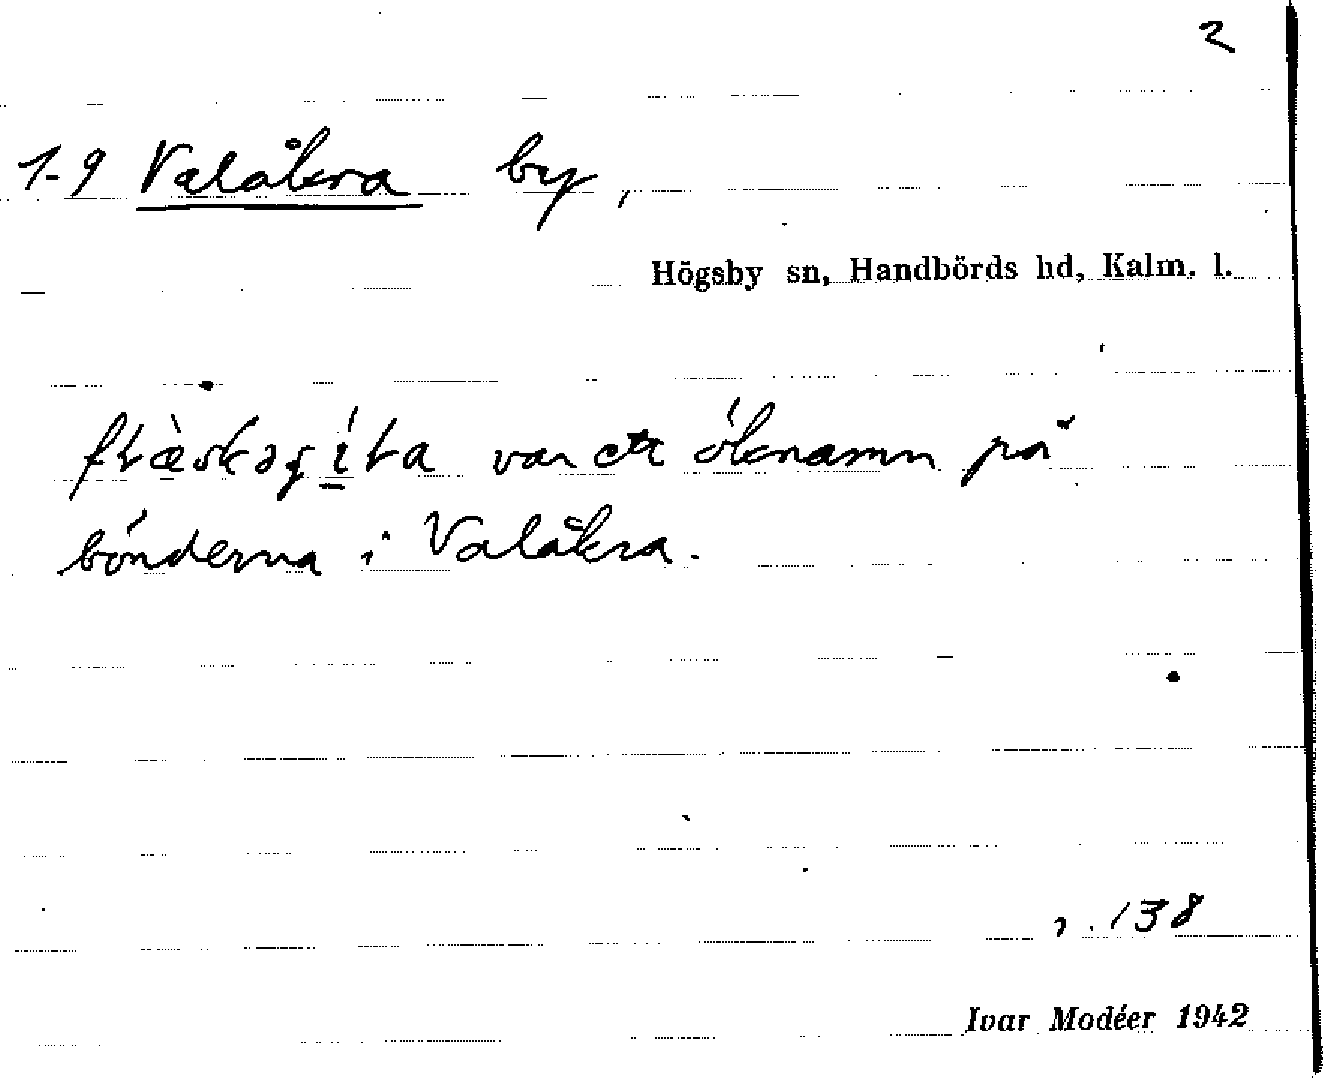 2
1-9 Valåkra by,
Högsby sn, Handbörds hd, Kalm. l.
var ett öknamn på
bönderna i Valåkra.
s. 138
Ivar Modéer 1942